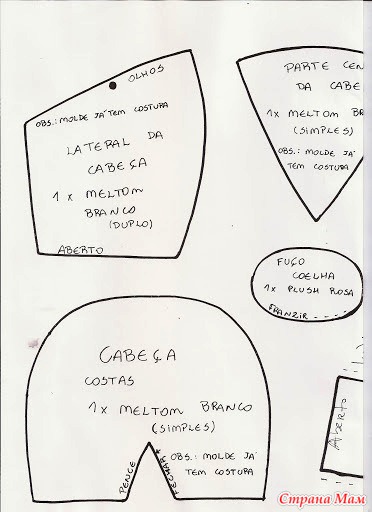 OLHOS
OBS.: MOLDE JÁ TEM COSTURA
LATERAL DA
CABEÇA
1 x MELTOM
BRANCO
(DUPLO)
ABERTO
PARTE CEN
DA CABE
1x MELTOM BR
(SIMPLES)
OBS.: MOLDE JÁ
TEM COSTURA
FUÇO
COELHA
1x PLUSH ROSA
FRANZIR
CABEÇA
COSTAS
1x MELTOM BRANCO
(SIMPLES)
OBS.: MOLDE JÁ
TEM COSTURA
PENCE
FECHAR
Aberto
Страна Мам